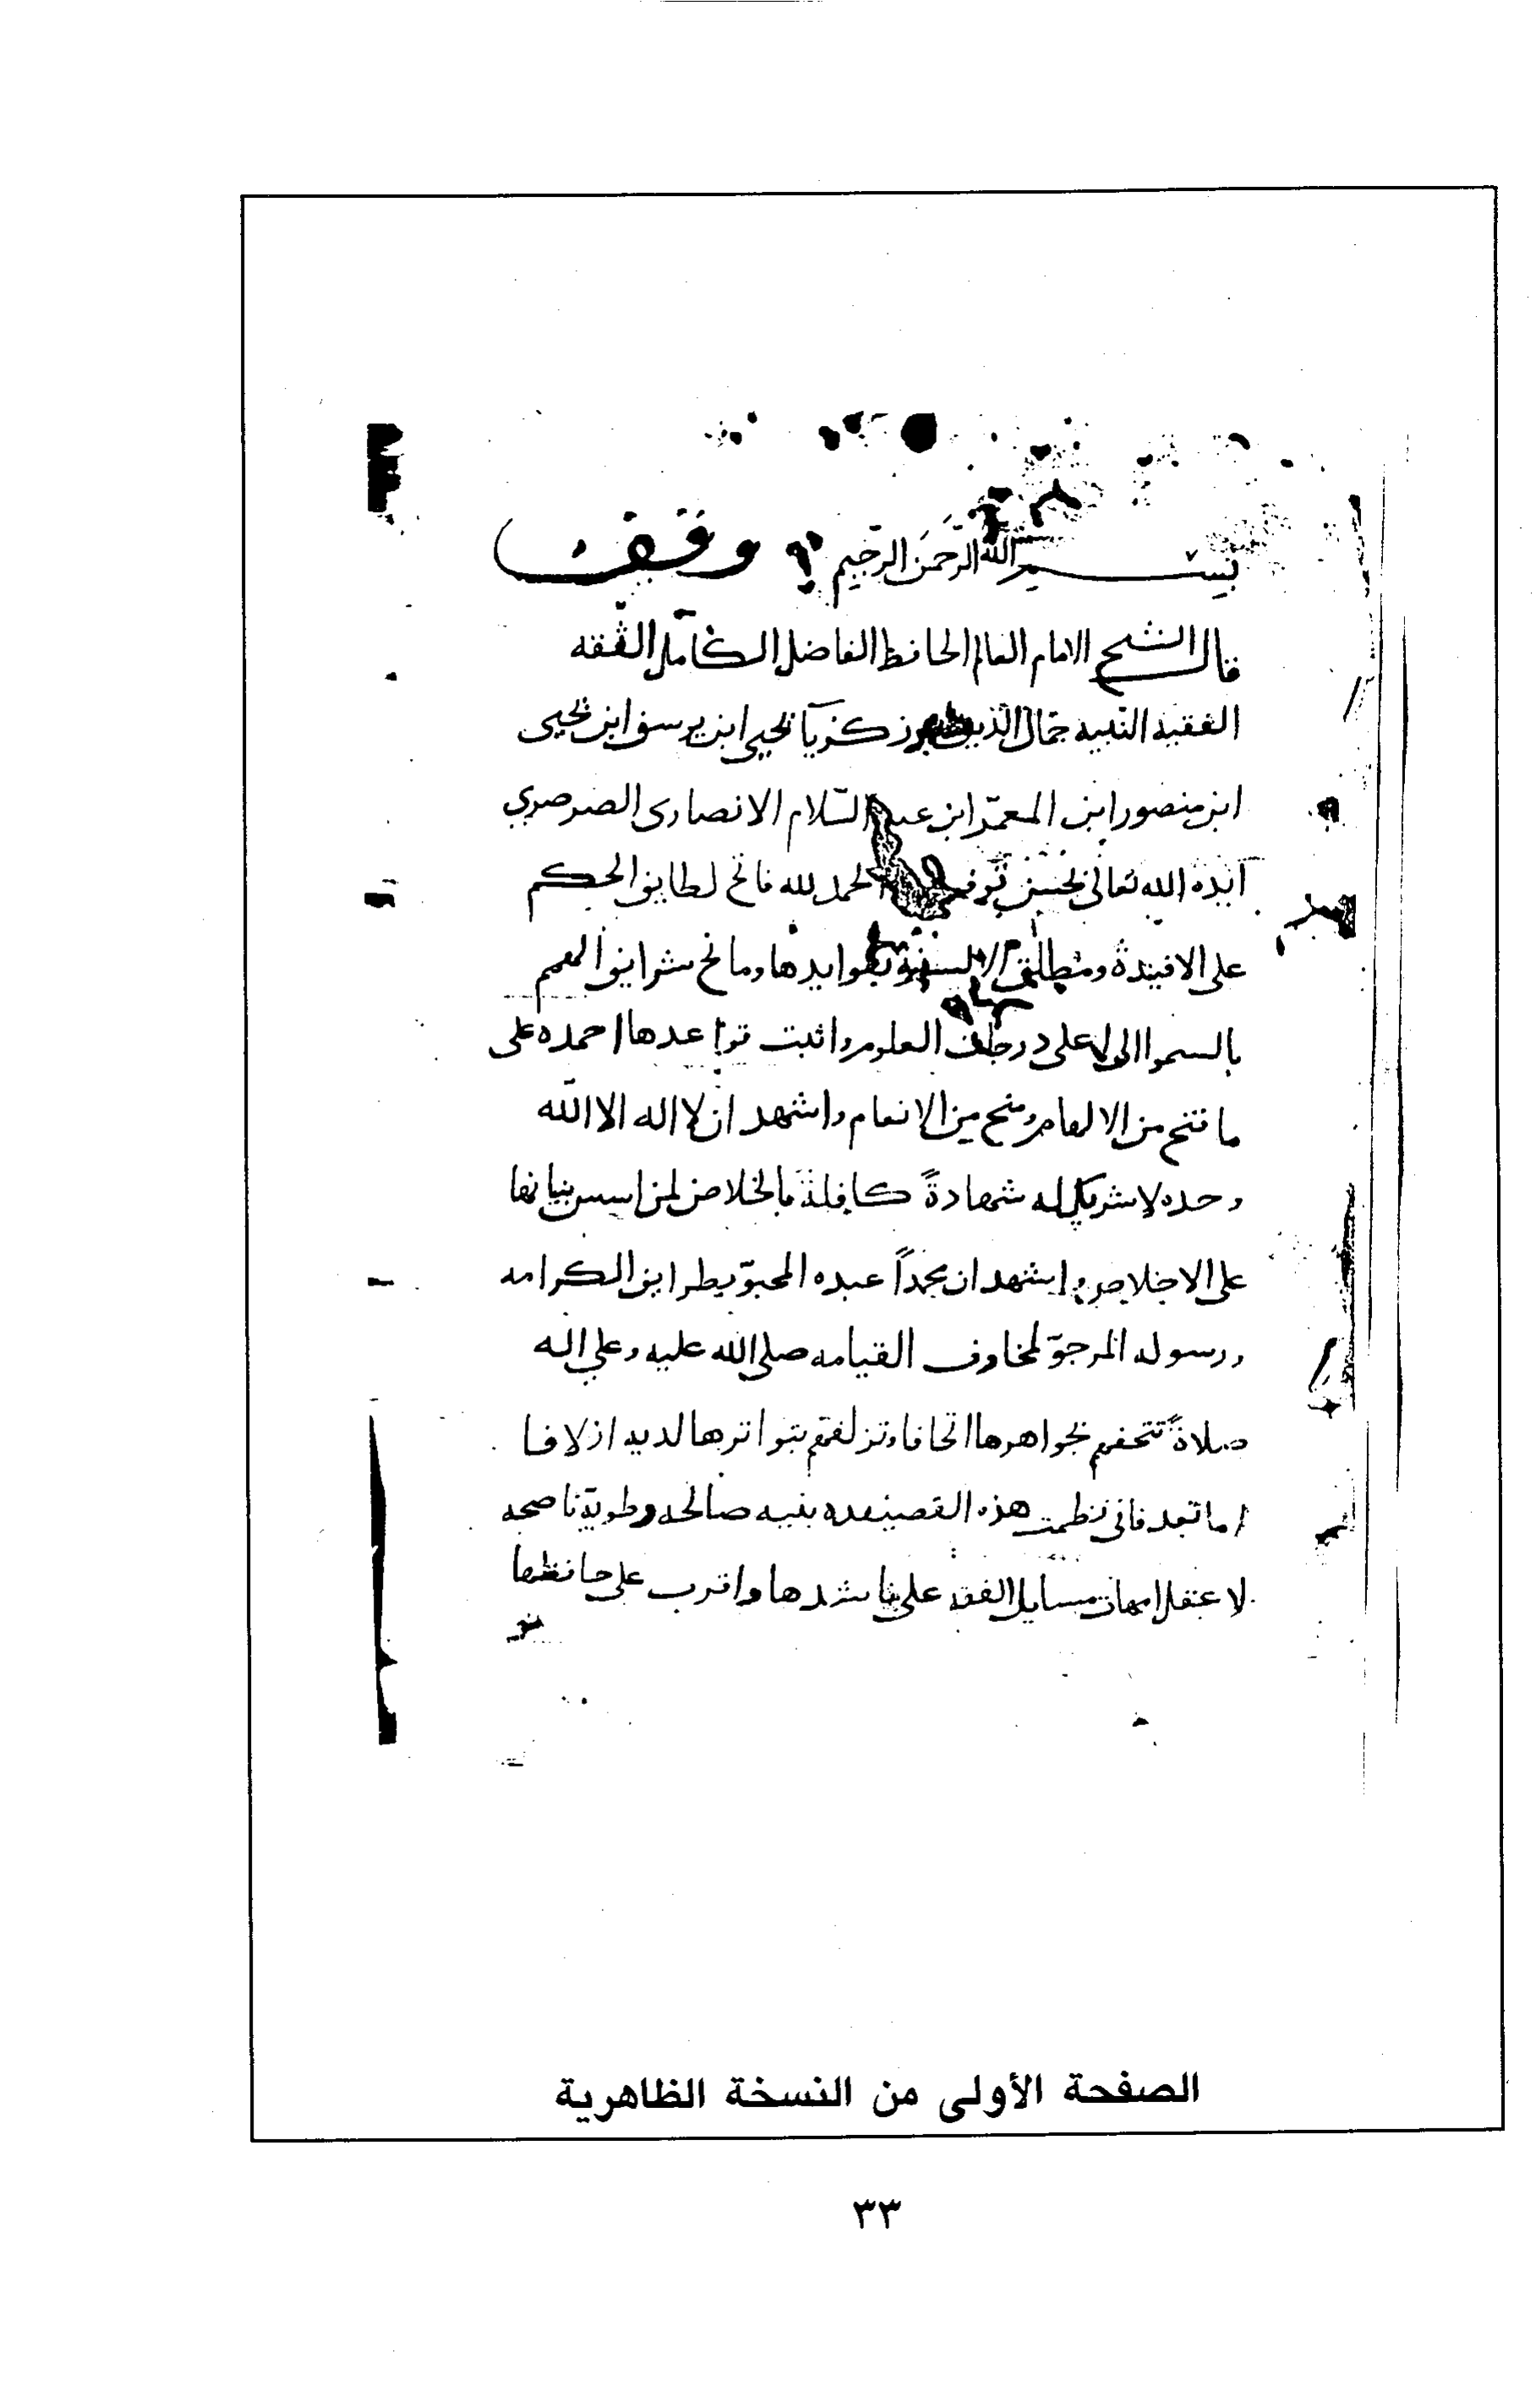 بسم الله الرحمن الرحيم وقف
قال الشيخ الامام العالم الحافظ الفاضل الكامل الثقه
الفقيه النبيه جمال الدين زكريا يحيى ابن يوسف ابن يحيى
ابن منصور ابن المعمّر ابن عبد السّلام الانصارى الصرصري
ايّده الله تعالى بحسن الحمد لله فاتح لطايف الحكم
على الافيدة ومطلق الالسنة بفوايدها ومانح شرايف الهمم
بالسموا الى على درجات العلوم واثبت قواعدها احمده على
ما فتح من الالهام ومنح من الانعام واشهد ان لا اله الا الله
وحده لا شريك له شهادةً كافلة بالخلاص لمن اسس بنيانها
على الاخلاص واشهد ان محمداً عبده المحبوّ بطرايف الكرامه
ورسوله المرجوّ لمخاوف القيامه صلى الله عليه وعلى اله
صلاةً تتحفهم بجواهرها اتحافا وتزلفهم بتواترها لديه ازلافا
اما بعد فانى نظمت هذه القصيده بنيه صالحه وطويّة ناصحه
لاعتقل امهات مسايل الفقه على ناشدها واقرب على حافظها
الصفحة الأولى من النسخة الظاهرية
٣٣